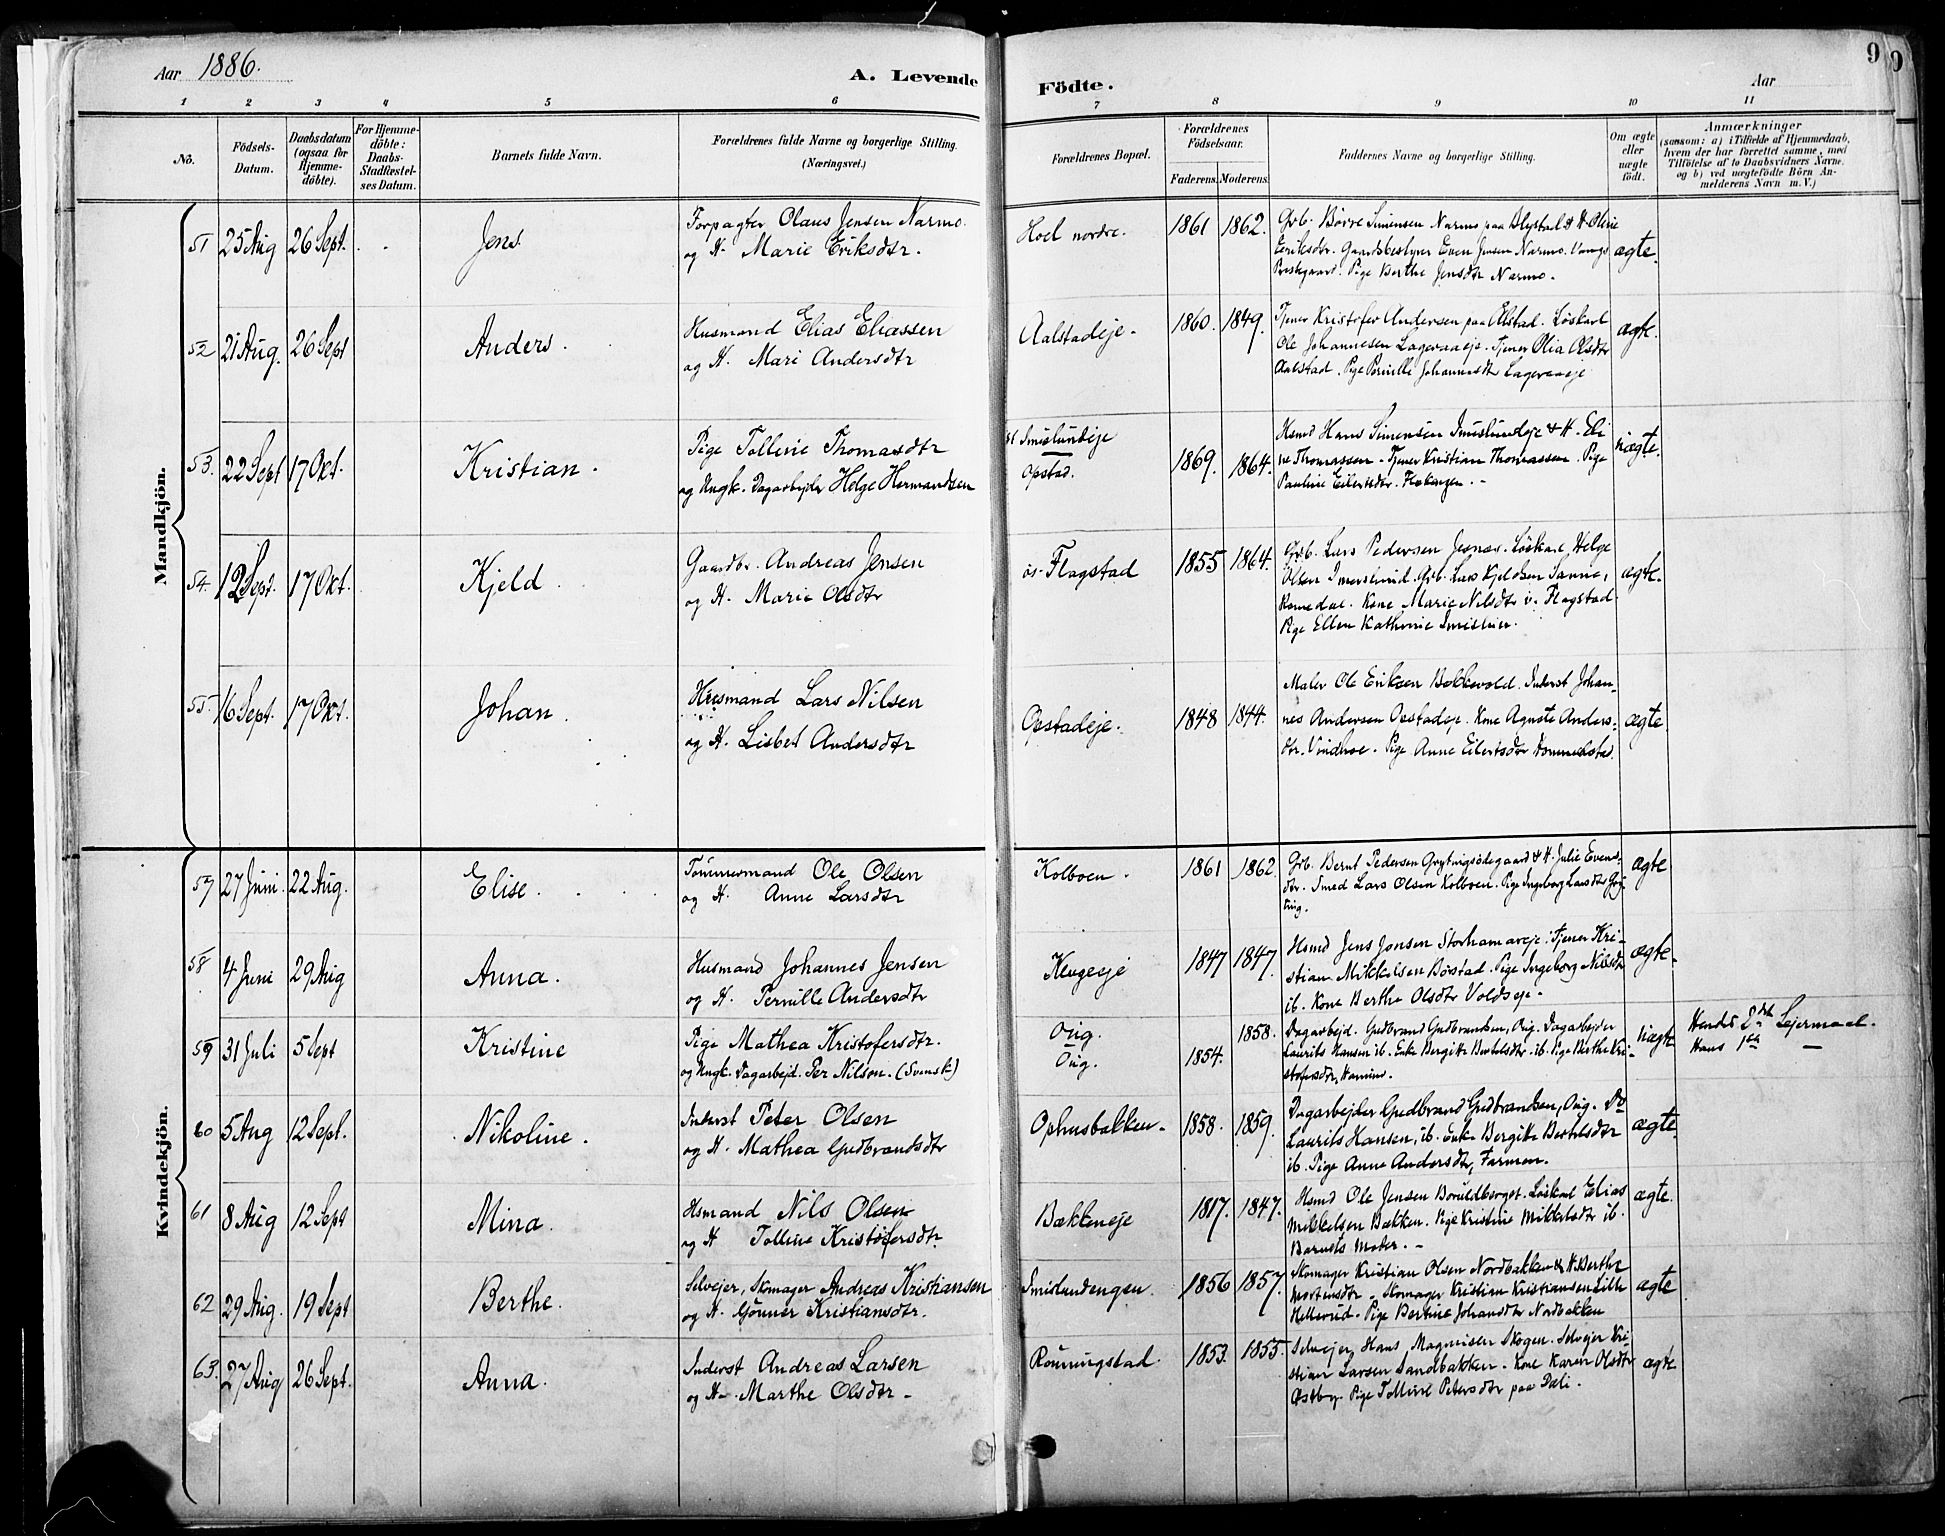 Aar 1886.
A. Levende Födte.
Aar
9
9
1 2 3 4 5 6 7 8 9 10 11
No.
Födsels-Datum.
Daabsdatum (ogsaa for Hjemme-döbte).
For Hjemme-döbte: Daabs-Stadfæstel-ses Datum.
Barnets fulde Navn.
Forældrenes fulde Navne og borgerlige Stilling. (Næringsvei.)
Forældrenes Bopæl.
Forældrenes Födselsaar.
Faderens. Moderens.
Faddernes Navne og borgerlige Stilling.
Om ægte eller uægte födt.
Anmærkninger
(saasom: a) i Tilfælde af Hjemmedaab, hvem der har forrettet samme, med Tilföielse af to Daabsvidners Navne, og b) ved uægtefödte Börn An-melderens Navn m. V.)
Mandkjön.
51 25 Aug 26 Sept. Jens
Forpagter Olaus Jensen Narmo
og H. Marie Eriksdtr.
Hoel nordre. 1861 1862.
Grb. Börre Simensen Narmo paa Alystad & H. Oline
Eriksdtr. Gaardsbestyrer Even Jensen Narmo. Vangs
Prestegaard. Pige Berthe Jensdtr Narmo.
ægte.
52 21 Aug. 26 Sept Anders.
Husmand Elias Eliassen
og H. Mari Andersdtr
Aalstadeje. 1860. 1849.
Tjener Kristofer Andersen paa Alstad. Löskarl
Ole Johannesen Lageraaeje. Tjener Olia Olsdtr
Aalstad. Pige Pernille Johannesdtr Lageraaeje
ægte.
53. 22 Sept 17 Okt. Kristian.
Pige Tolline Thomasdtr
og Ungk. Dagarbejder Helge Hermandsen
Imislundeje
Opstad. 1869. 1864.
Hsmd Hans Simensen Imislundeje & H. Eli
ne Thomassen. Tjener Kristian Thomassen. Pige
Pauline Eilertsdtr.
uægte.
54. 12 Sept. 17 Okt. Kjeld
Gaardbr. Andreas Jensen
og H. Marie Olsdtr
ös. Flagstad 1855 1864.
Grb. Lars Pedersen Jesnes. Löskarl Helge
Olsen Imerslund. Grb. Lars Kjeldsen Sanne,
Romedal. Kone Marie Nilsdtr v. Flagstad.
Pige Ellen Kathrine
ægte.
55. 16 Sept. 17 Okt. Johan.
Husmand Lars Nilsen
og H. Lisbet Andersdtr
Opstadeje. 1848 1844.
Maler Ole Eriksen Bekkevold. Inderst Johan-
nes Andersen Opstadeje. Kone Agnete Anders-
dtr. Vindhoe. Pige Anne Eilertsdtr Dommelstad.
ægte
Kvindekjön.
57 27 Juni. 22 Aug. Elise.
Tömmermand Ole Olsen
og H. Anne Larsdtr
Kolboen. 1861 1862.
Grb. Bernt Pedersen Grytingsödegaard & H. Julie Evens-
dtr. Smed Lars Olsen Kolboen. Pige Ingeborg Larsdtr Gry
ting.
ægte
58 4 Juni 29 Aug Anna.
Husmand Johannes Jensen
og H. Pernille Andersdtr
Klugeseje 1847 1847.
Hsmd Jens Jonsen Storhamareje. Tjener Kri-
stian Mikkelsen Börstad. Pige Ingeborg Nilsdtr
ib. Kone Berthe Olsdtr Voldseje.
ægte.
59 31 Juli 5 Sept Kristine
Pige Mathea Kristofersdtr.
og Ungk. Dagarbejd. Per Nilson. (Svensk)
Oug.
Oug. 1854. 1858.
Dagarbejd. Gudbrand Gudbrandsen, Oug. Dagarbejder
Laurits Hansen ib. Enke Bergitte Bertelsdtr. ib. Pige Berthe Kri-
stofersdtr, Hamar.
uægte
Hendes 2det Lejermaal.
Hans 1ste —
60 5 Aug 12 Sept. Nikoline.
Inderst Peter Olsen
og H. Mathea Gudbrandsdtr
Ophusbakken. 1858. 1859.
Dagarbejder Gudbrand Gudbrandsen, Oug. Do
Laurits Hansen, ib. Enke Bergitte Bertelsdtr
ib. Pige Anne Andersdtr, Farmen.
ægte.
61 8 Aug 12 Sept Mina.
Hsmand Nils Olsen
og H Tolline Kristofersdtr.
Bækkeneje 1817. 1847.
Hsmd Ole Jensen Boruldberget. Löskarl Elias
Mikkelsen Bækken. Pige Kristine Mikkelsdtr ib.
Barnets Moder.
ægte.
62 29 Aug. 19 Sept Berthe.
Selvejer, Skomager Andreas Kristiansen
og H. Gönner Kristiansdtr.
Imislundengen. 1856 1857.
Skomager Kristian Olsen Nordbakken & H. Berthe
Mortensdtr. Skomager Kristian Kristiansen Lille
Hellerud. Pige Bertine Johansdtr Nordbakken
ægte
63. 27 Aug 26 Sept. Anna.
Inderst Andreas Larsen
og H. Marthe Olsdtr.
Rönningstad. 1853. 1855.
Selvejer Hans Magnusen Skogen. Selvejer Kri-
stian Larsen Sandbakken. Kone Karen Olsdtr
Østby. Pige Tolline Petersdtr paa Dæli.
ægte